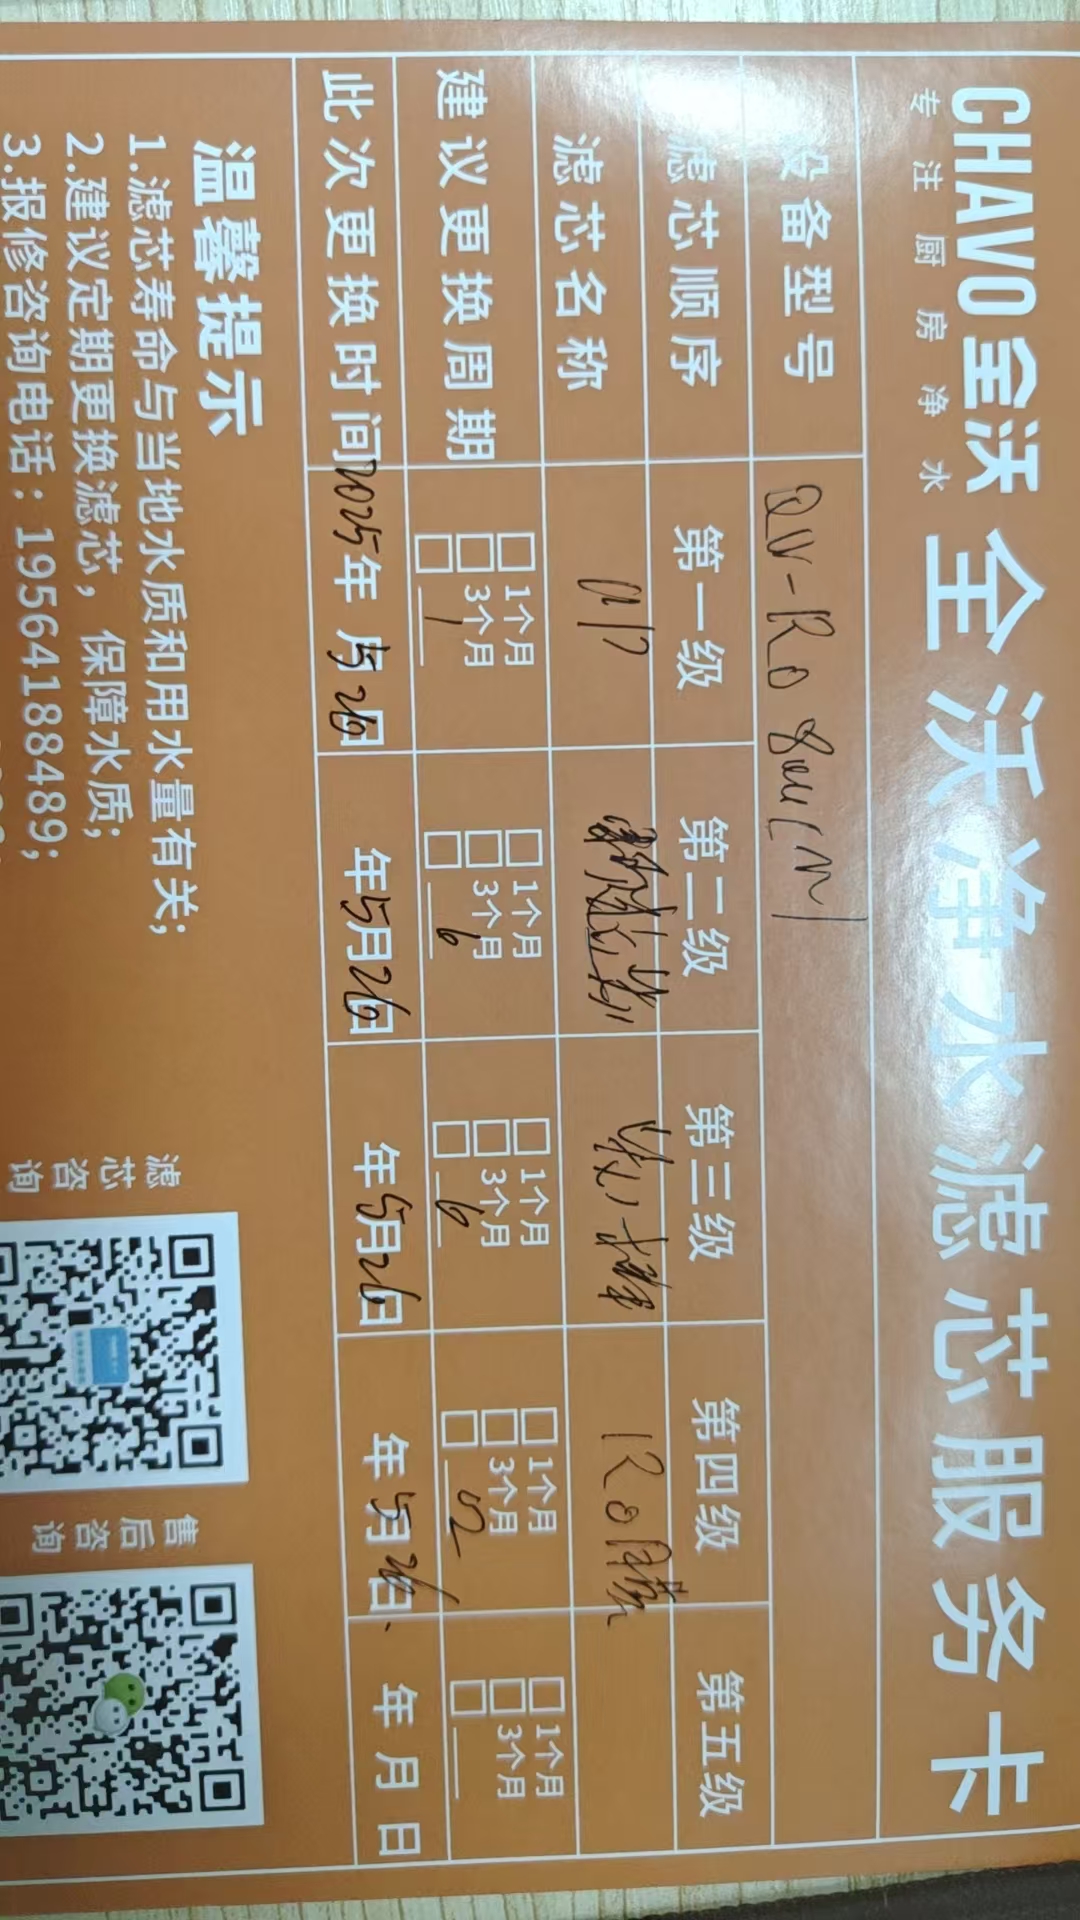 CHAVO全沃 全沃净水滤芯服务卡
专注厨房净水
设备型号 QW-RO
滤芯顺序 第一级 第二级 第三级 第四级 第五级
滤芯名称 RO膜
建议更换周期 □1个月 □1个月 □1个月 □1个月 □1个月
□3个月 □3个月 □3个月 □3个月 □3个月
□1 □6 □6 □ □
此次更换时间 2025年5月26日 年5月26日 年5月26日 年5月26日 年 月 日
温馨提示
1.滤芯寿命与当地水质和用水量有关;
2.建议定期更换滤芯，保障水质;
3.报修咨询电话：19564188489;
滤芯咨询
售后咨询